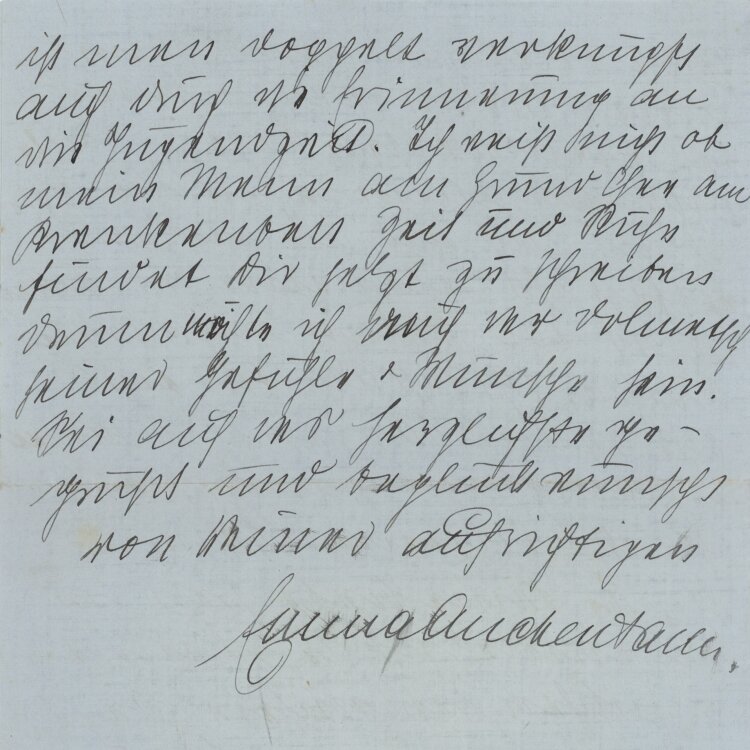 ist man doppelt verknüpft
auch durch die Erinnerung an
die Jugendzeit. Ich weiß nicht ob
mein Mann am am
Krankenbett Zeit und Ruhe
findet Dir jetzt zu schreiben
darum möchte ich auch der Dolmetsch
seiner Gefühle & Wünsche sein.
Sei auch das herzlichste ge-
grüßt und beglückwünscht
von Deiner aufrichtigen
Emma Auchentaller.